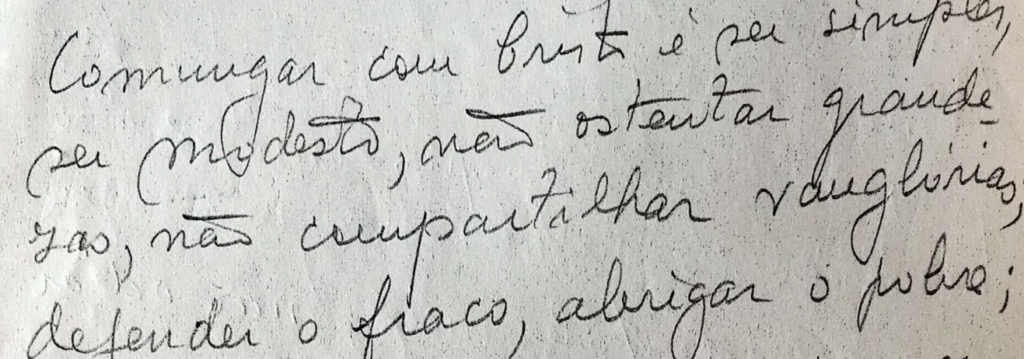 Comungar com Cristo é ser simples,
ser modesto, não ostentar grande-
zas, não compartilhar vanglórias,
defender o fraco, abrigar o pobre;